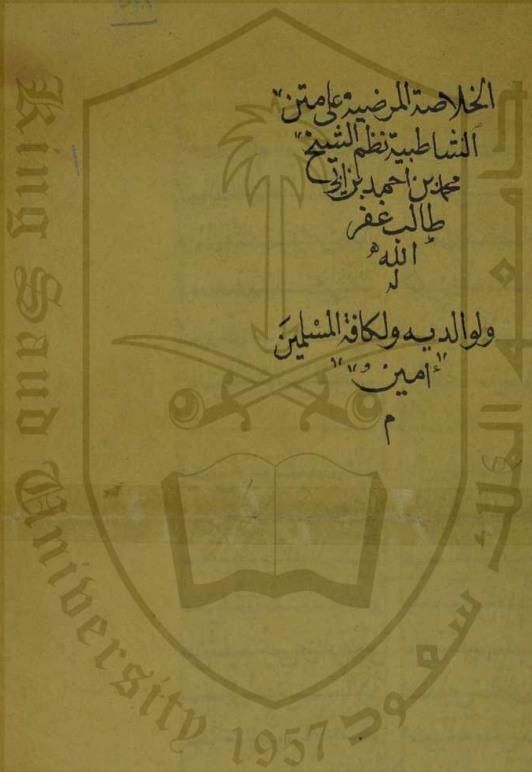 الخلاصة المرضية على متن
الشاطبية نظم الشيخ
محمد بن احمد بن ابي
طالب غفر
الله
له
ولوالديه ولكافة المسلمين
امين
م
King Saud University
جامعة الملك سعود
1957